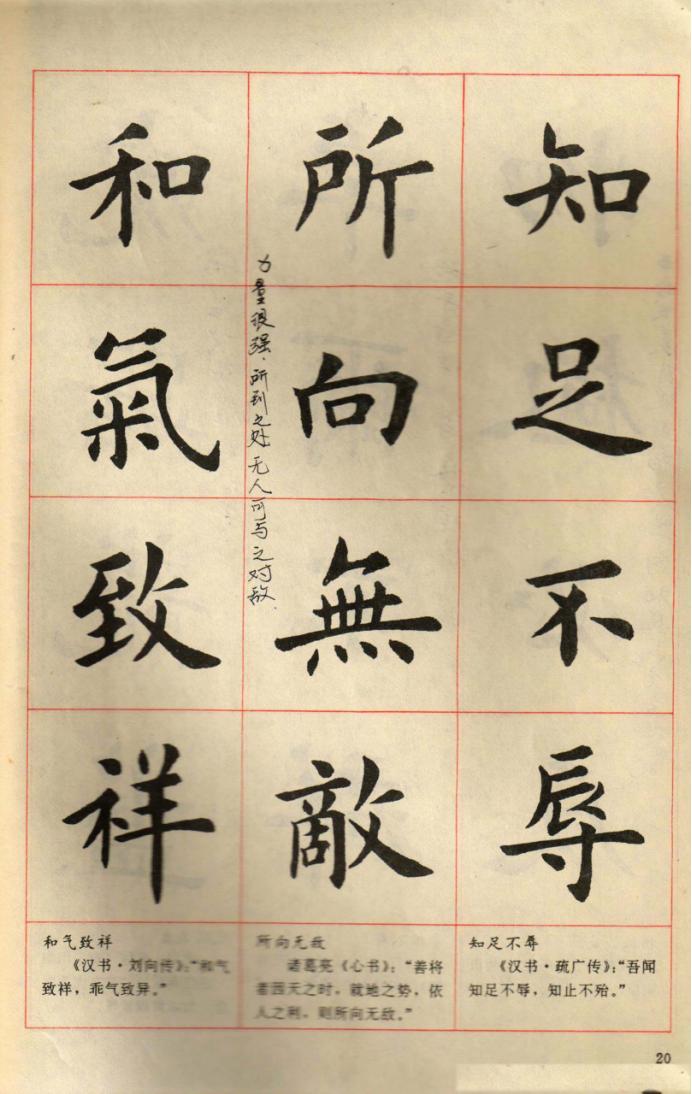 知足不辱
所向無敵
和氣致祥
力量很强，所到之处，无人可与之对敌。
知足不辱
《汉书·疏广传》：“吾闻
知足不辱，知止不殆。”
所向无敌
诸葛亮《心书》：“善将
者因天之时，就地之势，依
人之利，则所向无敌。”
和气致祥
《汉书·刘向传》：“和气
致祥，乖气致异。”
20